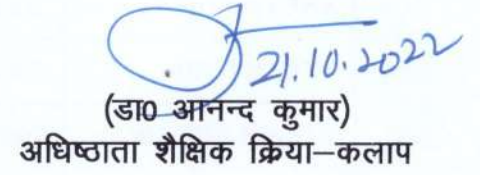 21.10.2022
(डा0 आनन्द कुमार)
अधिष्ठाता शैक्षिक क्रिया–कलाप